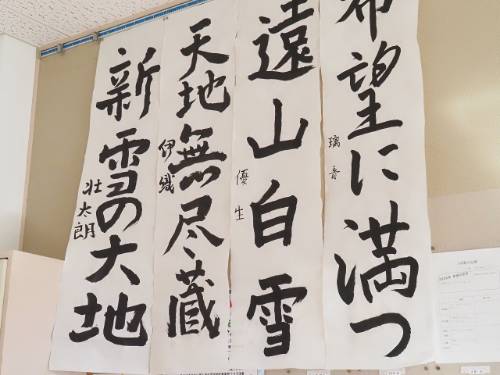 希望に満つ
璃音
遠山白雪
優生
天地無尽蔵
伊織
新雪の大地
壮太郎